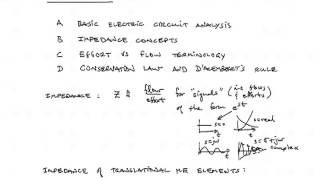 A BASIC ELECTRIC CIRCUIT ANALYSIS
B IMPEDANCE CONCEPTS
C EFFORT VS FLOW TERMINOLOGY
D CONSERVATION LAW AND D'ALEMBERT'S RULE
IMPEDANCE : Z ≜ flow/effort for "signals" (i.e. flows & efforts)
of the form e^st
s=0
s real
t
t
s=jω
s=σ+jω
complex
t
t
IMPEDANCE of TRANSLATIONAL ME ELEMENTS :